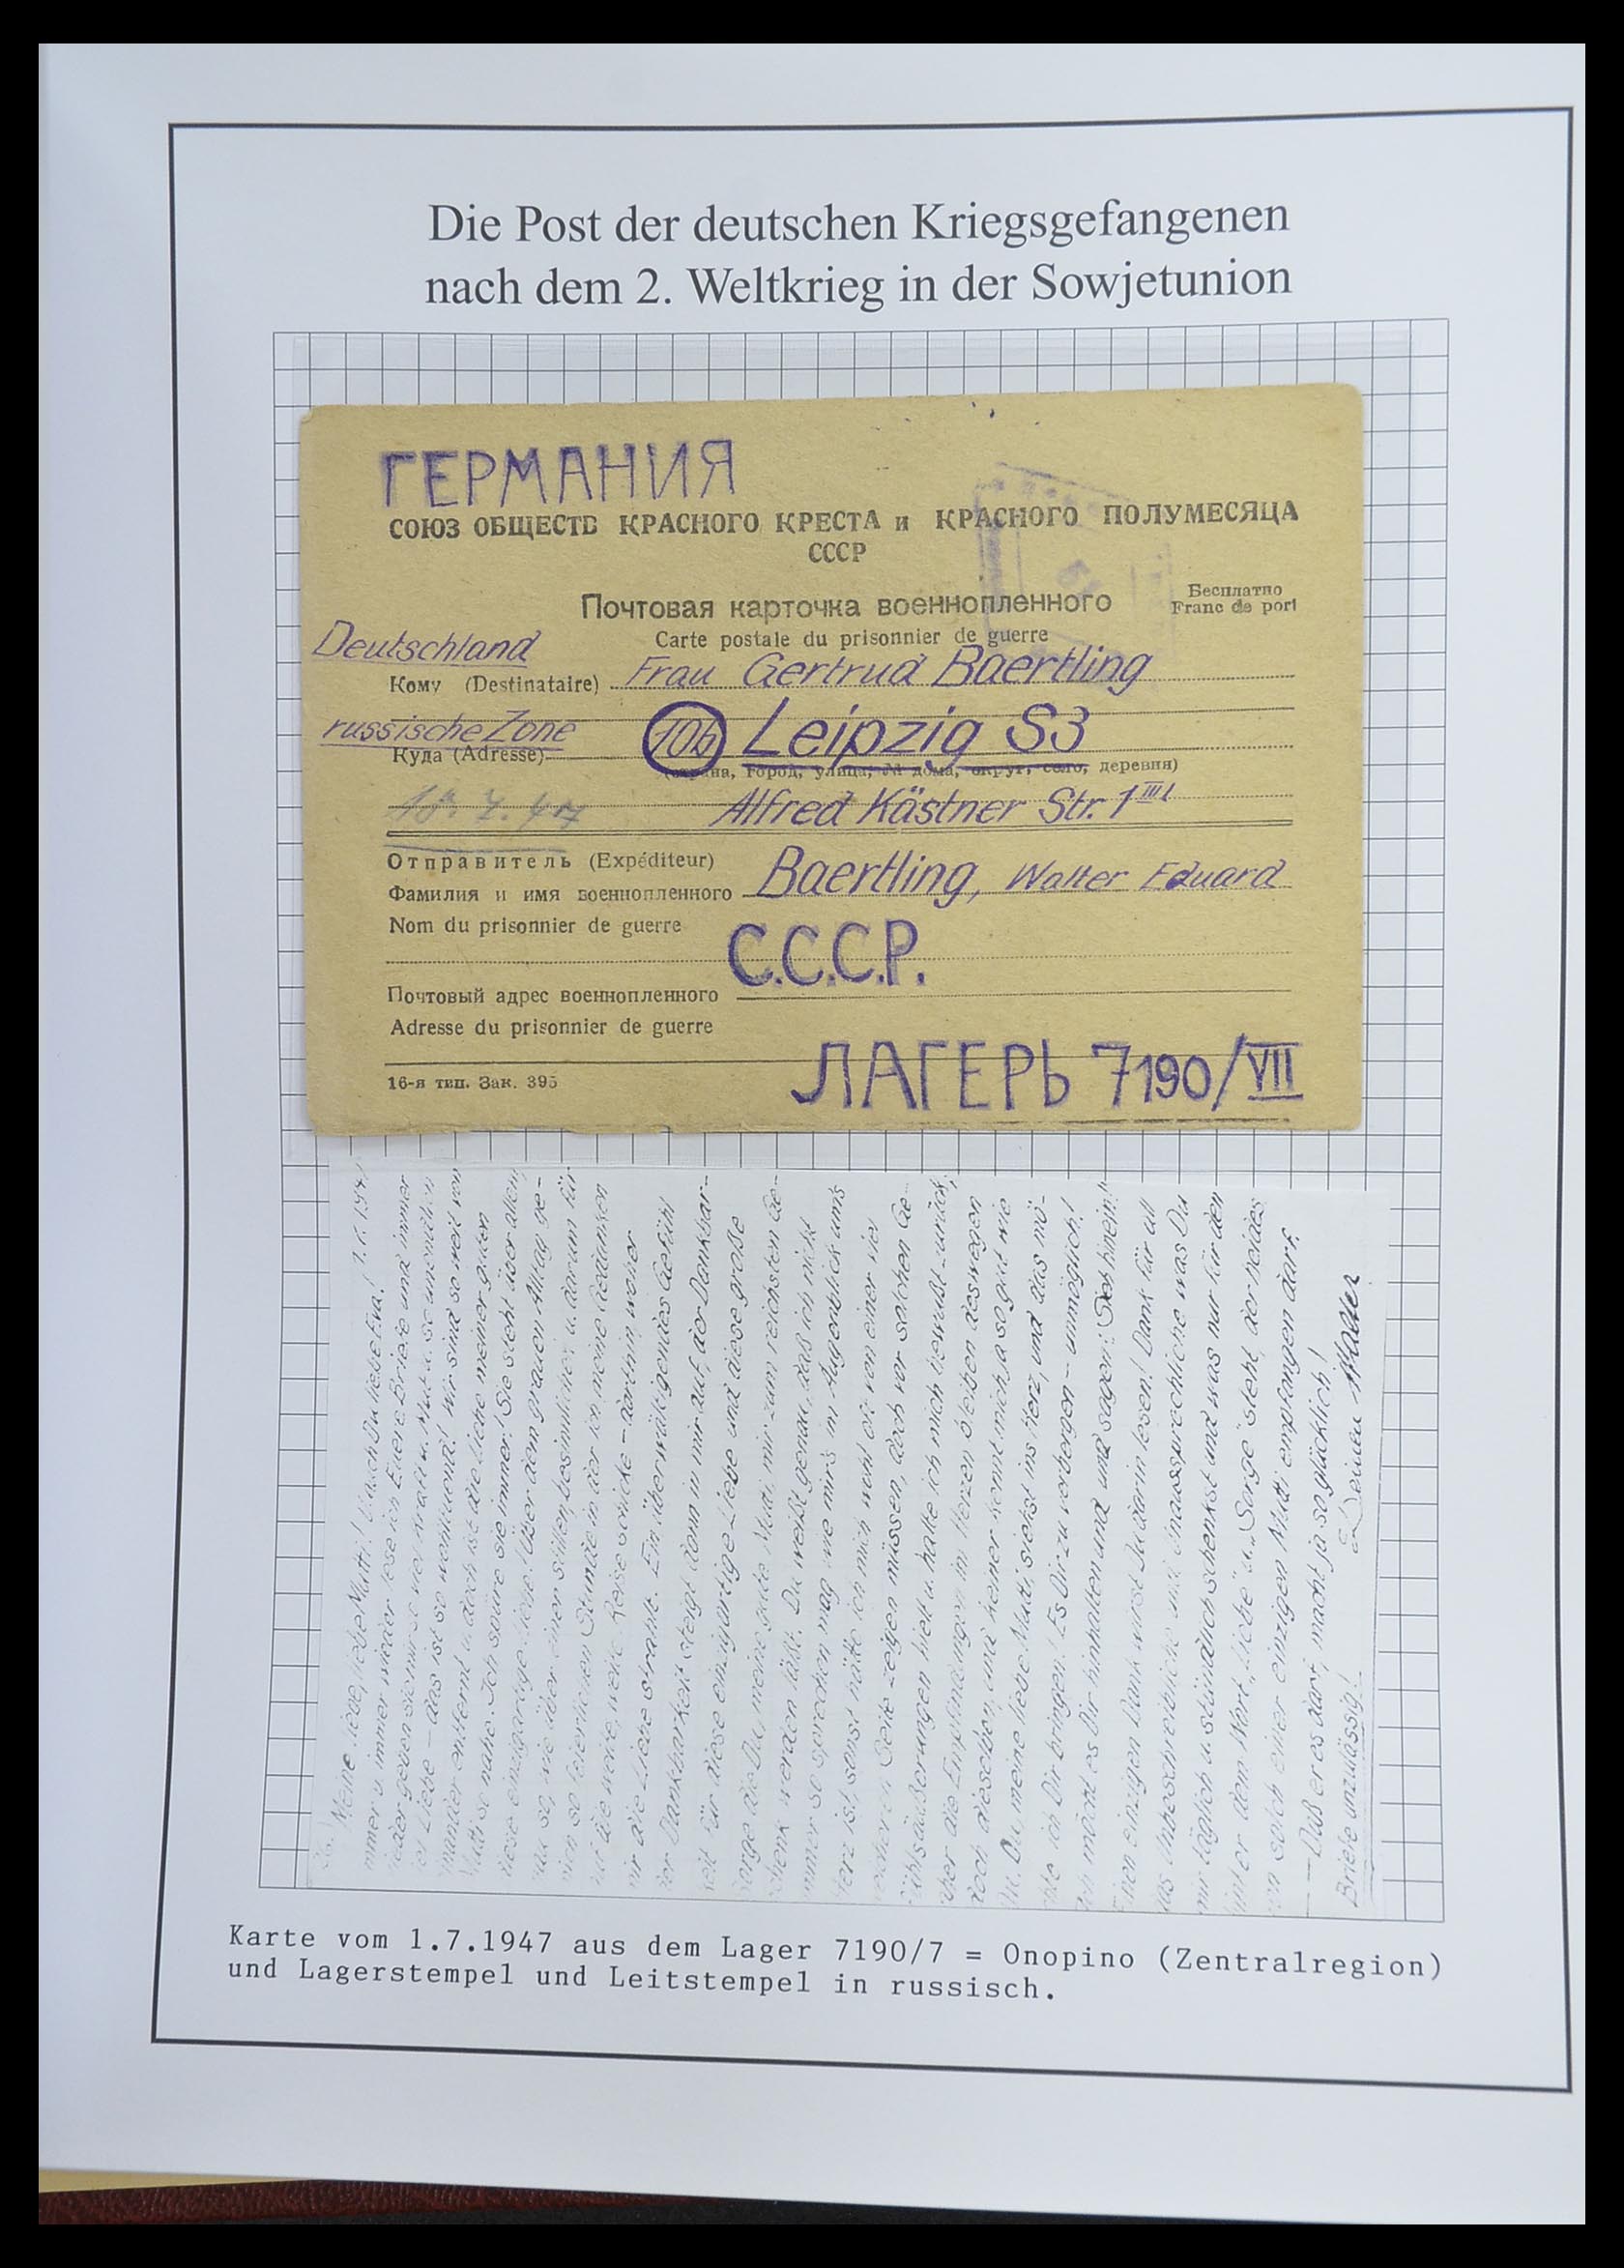 Die Post der deutschen Kriegsgefangenen
nach dem 2. Weltkrieg in der Sowjetunion
ГЕРМАНИЯ
СОЮЗ ОБЩЕСТВ КРАСНОГО КРЕСТА и КРАСНОГО ПОЛУМЕСЯЦА
СССР
Почтовая карточка военнопленного
Бесплатно
Franc de port
Carte postale du prisonnier de guerre
Deutschland
Кому (Destinataire) Frau Gertrud Baertling
russische Zone
10b Leipzig S3
Куда (Adresse)
город, улица, № дома, округ, село, деревня)
Alfred Kästner Str. 1 III l
7. 47
Отправитель (Expéditeur)
Фамилия и имя военнопленного Baertling, Walter Eduard
Nom du prisonnier de guerre
С.С.С.Р.
Почтовый адрес военнопленного
Adresse du prisonnier de guerre
ЛАГЕРЬ 7190/VII
16-я тип. Зак. 395
Meine liebe, liebe Mutti! Du liebe Eva!
immer wieder lese ich Eure Briefe und immer
Liebe – das ist so wohltuend! Wir sind so weit von
entfernt u. doch ist die Liebe meiner guten
Mutti so nahe. Ich spüre sie immer! Sie steht über allem,
diese einzigartige Liebe. Über dem grauen Alltag ge-
so, wie über einer stillen, besinnlichen u. darum für
mich so feierlichen Stunde, in der ich meine Gedanken
auf die weite, weite Reise schicke – dorthin, woher
mir die Liebe strahlt. Ein überwältigendes Gefühl
der Dankbarkeit steigt dann in mir auf, der Dankbar-
keit für diese einzigartige Liebe und diese große
Sorge, die Du, meine gute Mutti, mir zum reichsten Ge-
schenk werden läßt. Du weißt genau, daß ich nicht
immer so sprechen mag wie mirs im Augenblick ums
Herz ist, sonst hätte ich mich wohl oft von einer viel
Seite zeigen müssen, doch vor solchen Ge-
fühlsäußerungen hielt u. halte ich mich bewußt zurück,
aber die Empfindungen im Herzen bleiben deswegen
doch dieselben, und keiner kennt mich ja so gut wie
Du. Du, meine liebe Mutti, siehst ins Herz, und das mö-
chte ich Dir bringen! Es Dir zu verbergen – unmöglich!
Ich möcht es Dir hinhalten und und sagen: Sieh hinein!
Einen einzigen Dank wirst Du darin lesen! Dank für all
das Unbeschreibliche und Unaussprechliche was Du
mir täglich u. stündlich schenkst und was nur für den
hinter dem Wort „Liebe" u. „Sorge" steht, der beides
von solch einer einzigen Mutti empfangen darf.
– Daß er es darf, macht ja so glücklich!
Briefe unzulässig! Deinen Walter
Karte vom 1.7.1947 aus dem Lager 7190/7 = Onopino (Zentralregion)
und Lagerstempel und Leitstempel in russisch.